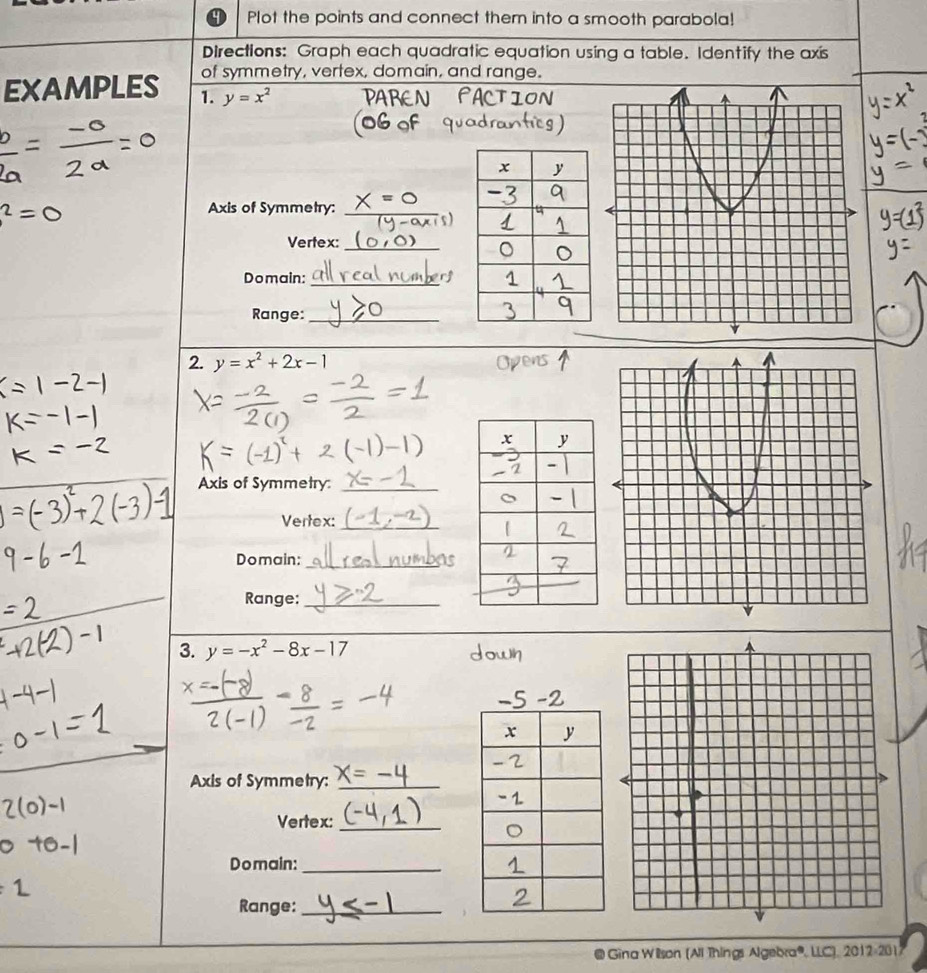 4 Plot the points and connect them into a smooth parabola!
Directions: Graph each quadratic equation using a table. Identify the axis
of symmetry, vertex, domain, and range.
EXAMPLES
1. y = x²
PAREN PACTION
(OG of quadrantics)
= -0 / 2a = 0
2a
² = 0
x y
-3 9
1 1
0 0
1 1
3 9
4
4
Axis of Symmetry: x = 0
(y-axis)
Vertex: (0,0)
Domain: all real numbers
Range: y ≥ 0
y = x²
y = (-
y =
y = (1²)
y =
2. y = x² + 2x - 1
opens ↑
x = -2 / 2(1) = -2 / 2 = 1
K = (-1)² + 2(-1)-1)
= 1 - 2 - 1
K = -1 - 1
K = -2
x y
-3
-2 -1
0 -1
1 2
2 7
3
Axis of Symmetry: x = -1
Vertex: (-1,-2)
Domain: all real numbers
Range: y ≥ -2
= (-3)² + 2(-3) - 1
9 - 6 - 1
= 2
+2(-2) - 1
-4-1
0 - 1 = 1
2(0) - 1
0 + 0 - 1
1
3. y = -x² - 8x - 17
down
x = -(-8) / 2(-1) = 8 / -2 = -4
-5 -2
x y
-2
-1
0
1
2
Axis of Symmetry: x = -4
Vertex: (-4,1)
Domain:
Range: y ≤ -1
© Gina Wilson (All Things Algebra®, LLC), 2012-2017